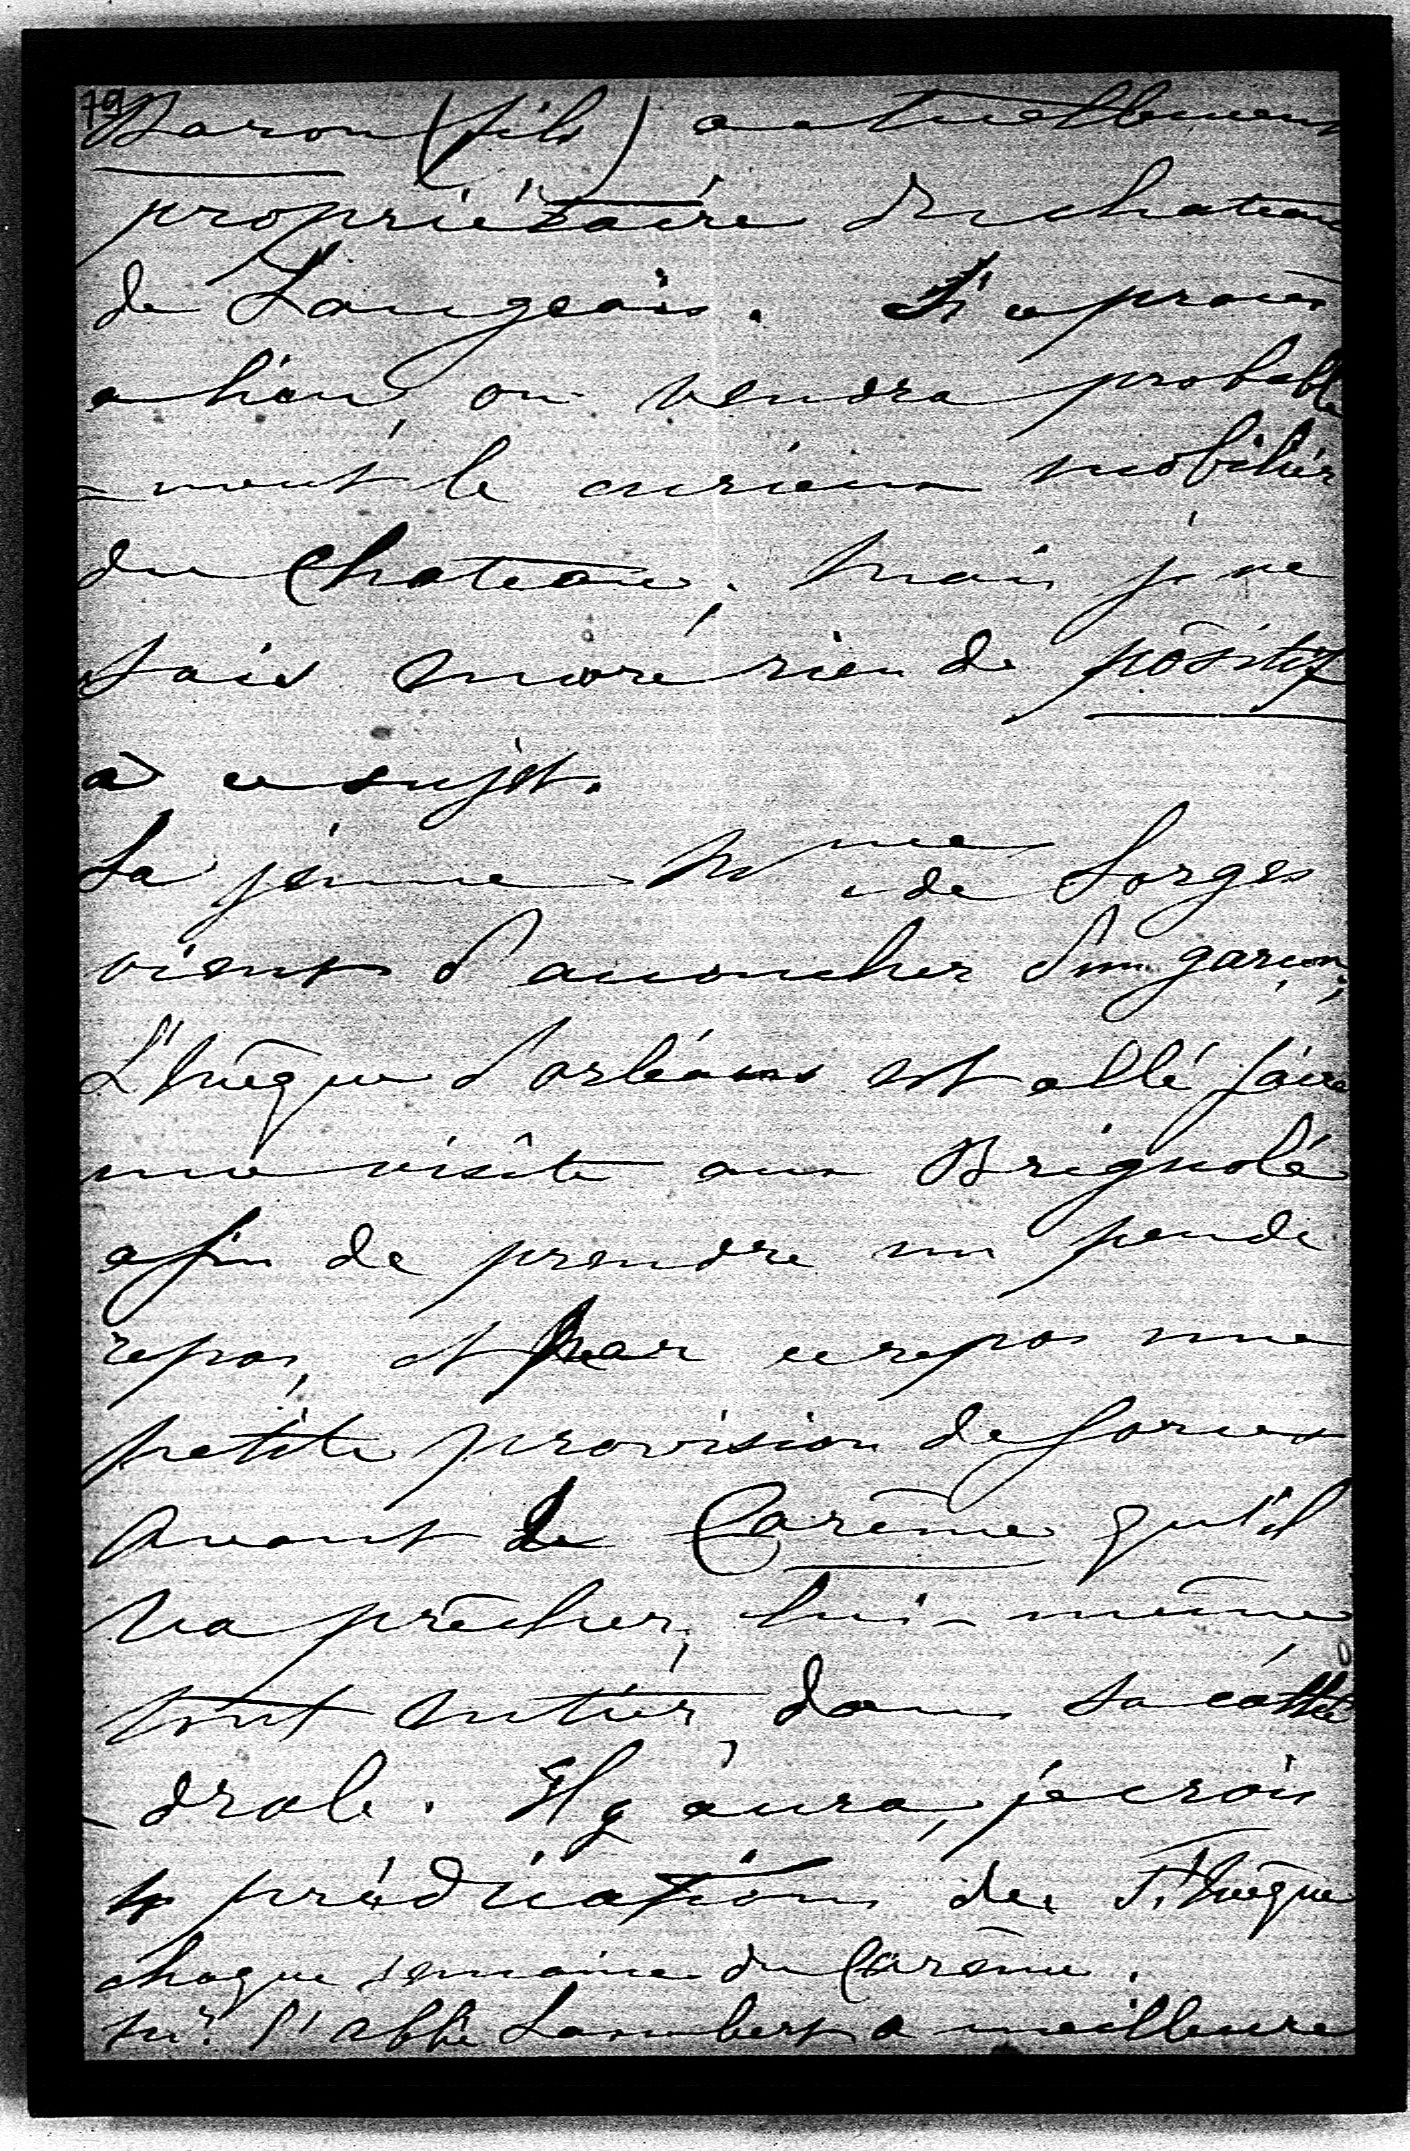 79
Baron (fils) actuellement
propriétaire du chateau
de Langeais. Si ce procès
a lieu, on vendra probable
-ment le curieux mobilier
du Chateau; mais je ne
sais encore rien de positif
à ce sujet.
La jeune Mme de Lorges
vient d'accoucher d'un garçon;
L'Evêque d'orléans est allé faire
une visite aux Brignolé
afin de prendre un peu de
repos, et par ce repos une
petite provision de forces
avant le Carême qu'il
va prêcher, lui-même
tout entier, dans sa cathé
-drale. Il y aura, je crois
4 prédications de l'Evêque
chaque semaine du Carême.
Mr l'abbé Lambert a meilleure